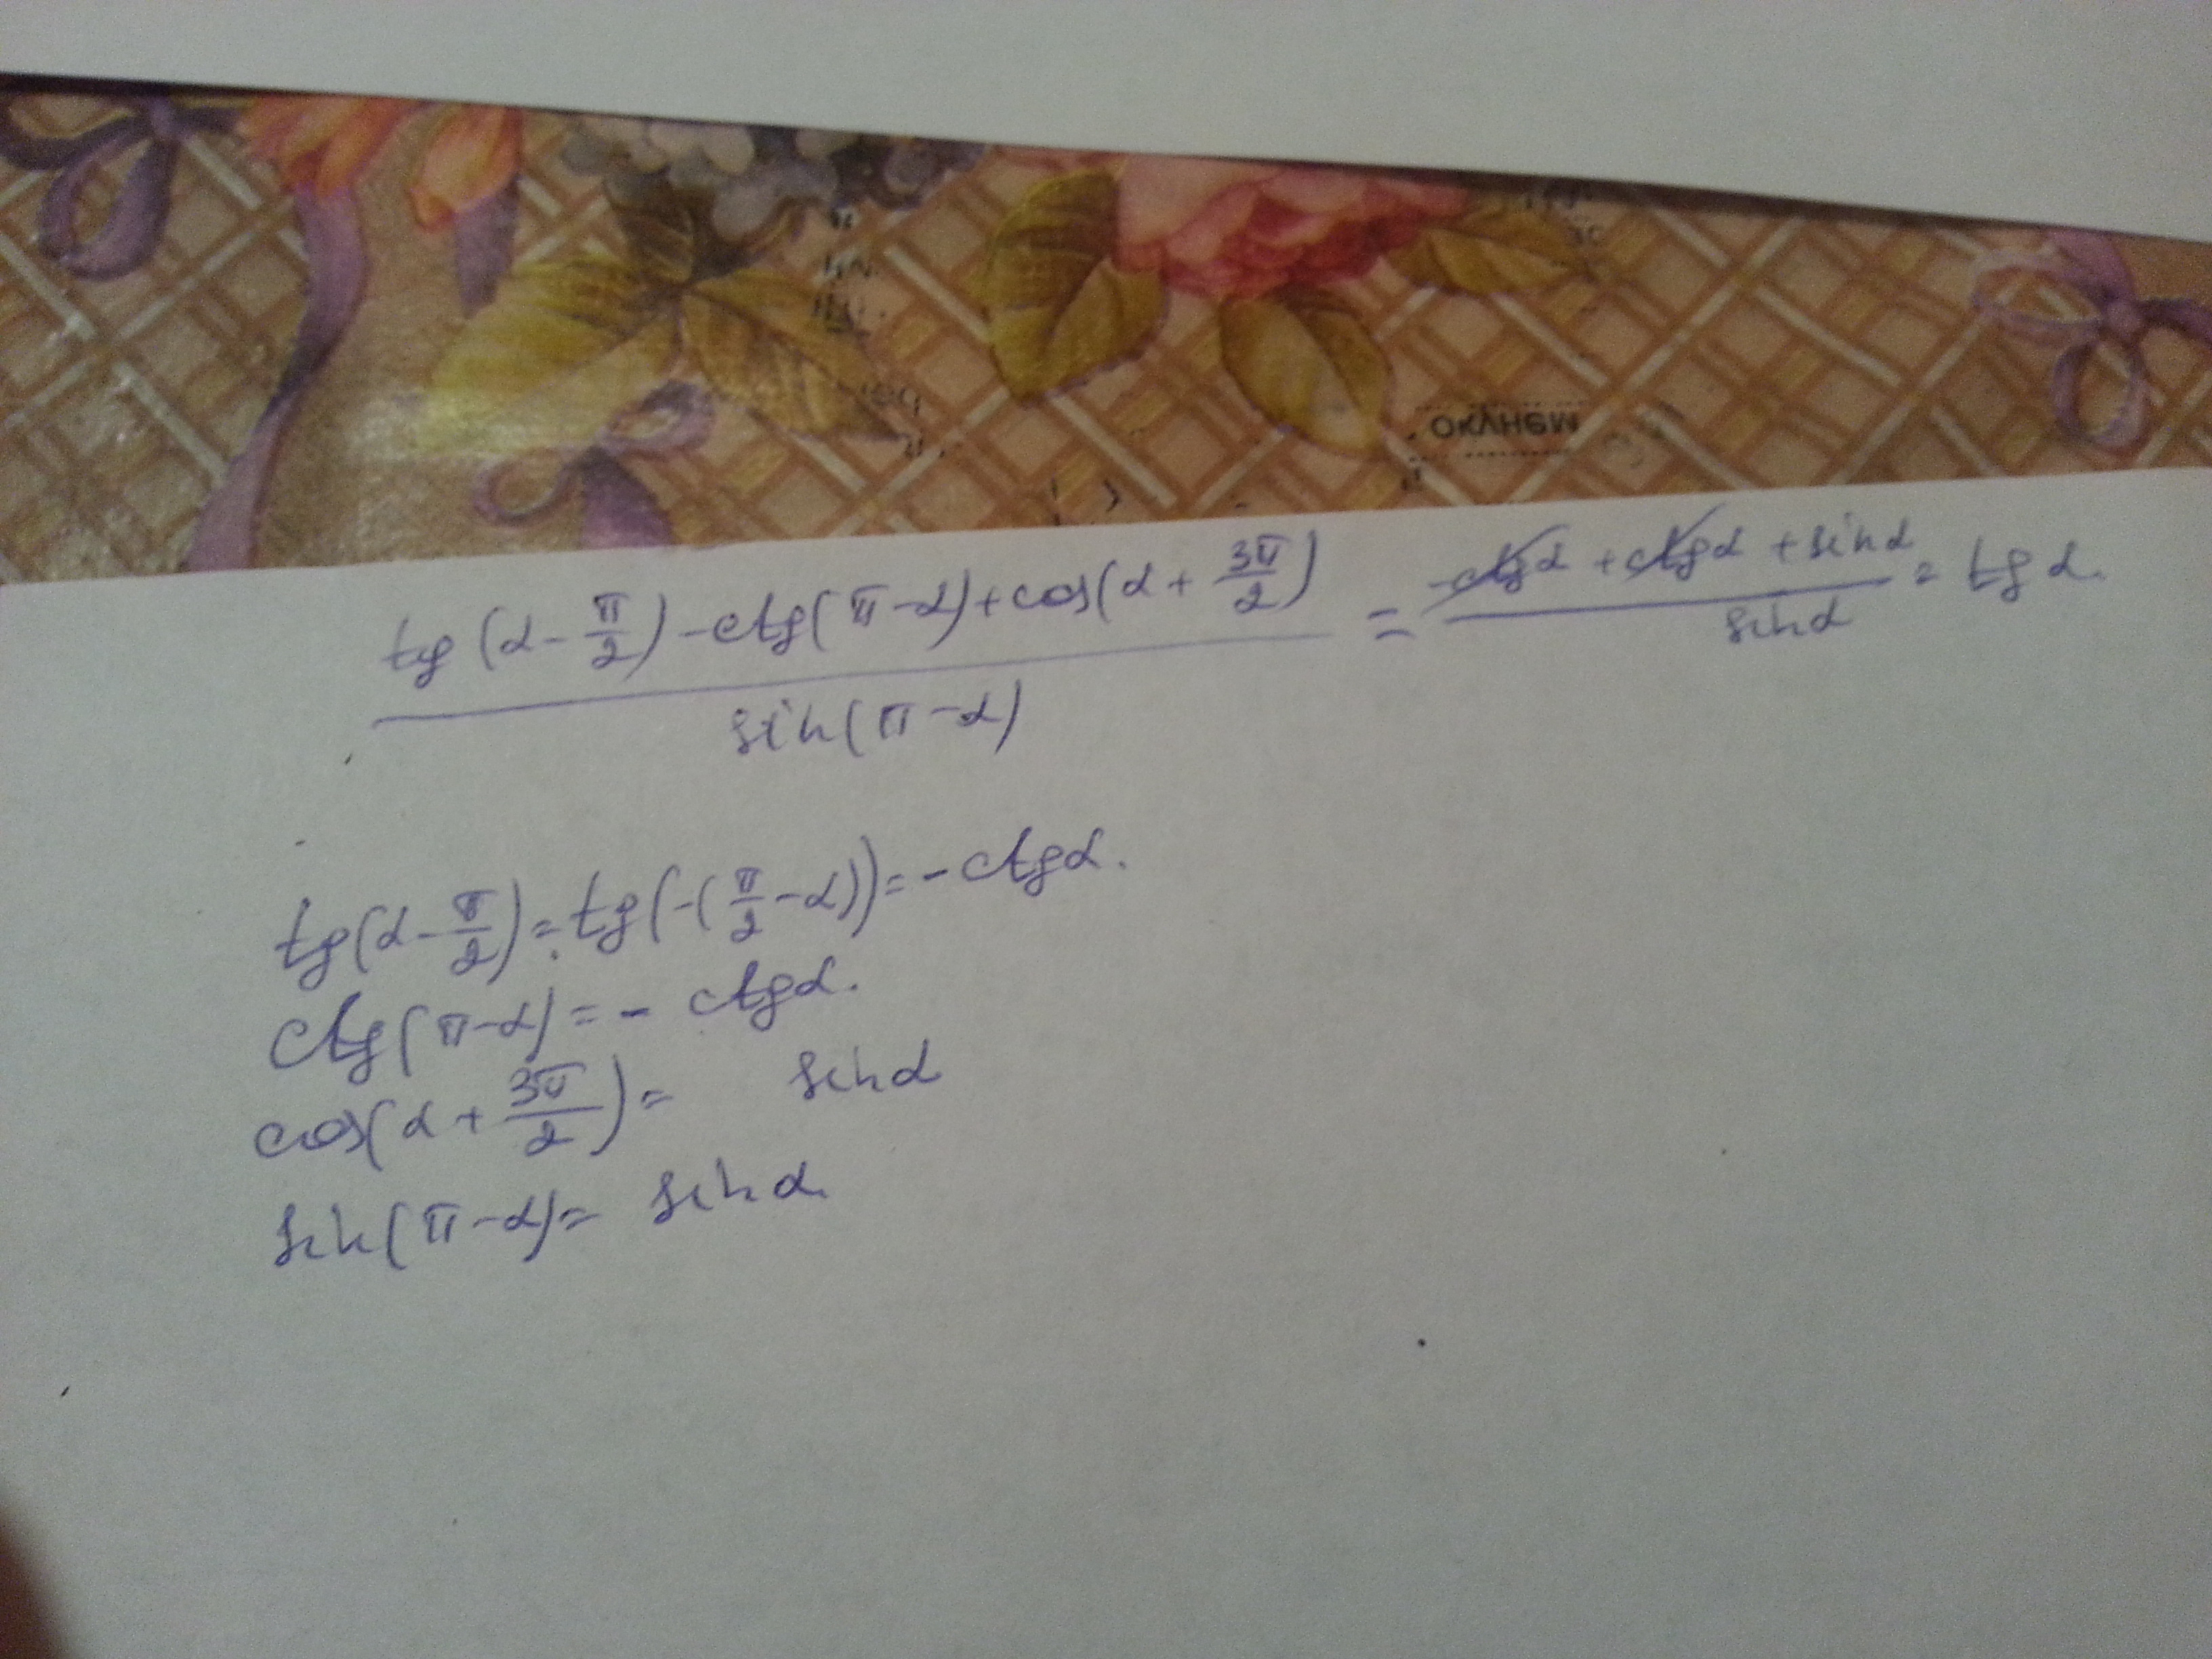 окунем
(tg(α - π/2) - ctg(π - α) + cos(α + 3π/2)) / sin(π - α) = (-ctgα + ctgα + sinα) / sinα = tgα.
tg(α - π/2) = tg(-(π/2 - α)) = - ctgα.
ctg(π - α) = - ctgα.
cos(α + 3π/2) = sinα
sin(π - α) = sinα